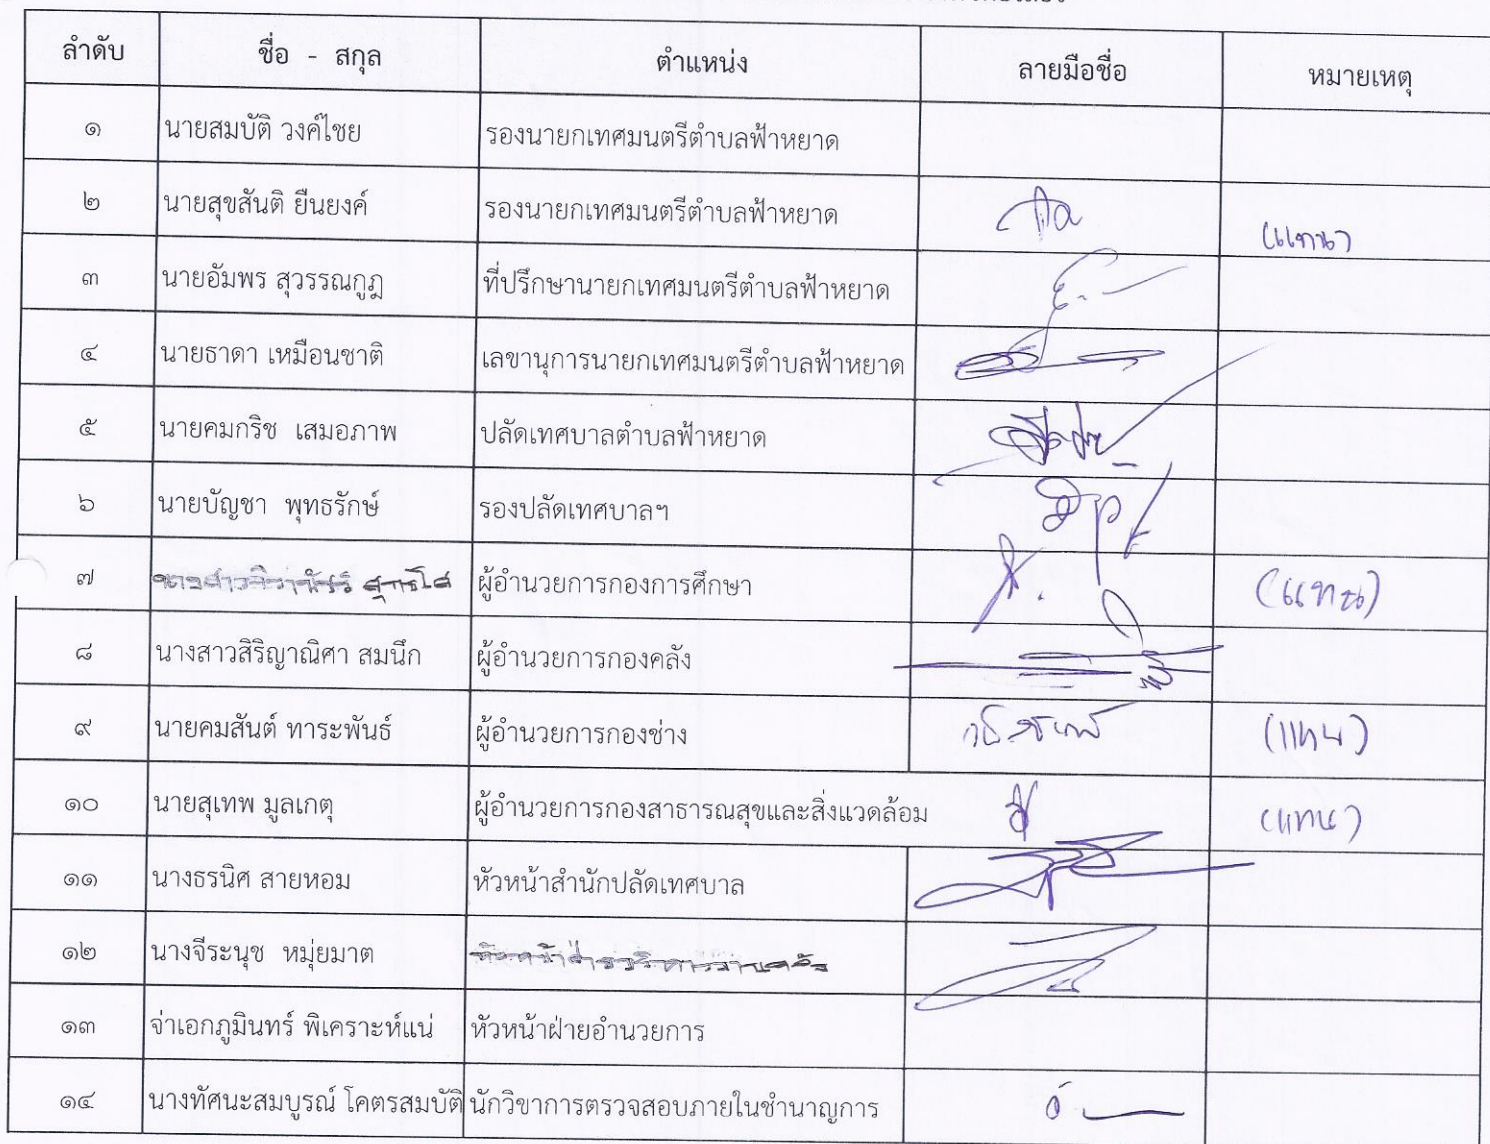 ลำดับ ชื่อ - สกุล ตำแหน่ง ลายมือชื่อ หมายเหตุ
๑ นายสมบัติ วงค์ไชย รองนายกเทศมนตรีตำบลฟ้าหยาด
๒ นายสุขสันติ ยืนยงค์ รองนายกเทศมนตรีตำบลฟ้าหยาด (แทน)
๓ นายอัมพร สุวรรณกูฎ ที่ปรึกษานายกเทศมนตรีตำบลฟ้าหยาด
๔ นายธาดา เหมือนชาติ เลขานุการนายกเทศมนตรีตำบลฟ้าหยาด
๕ นายคมกริช เสมอภาพ ปลัดเทศบาลตำบลฟ้าหยาด
๖ นายบัญชา พุทธรักษ์ รองปลัดเทศบาลฯ
๗ ผู้อำนวยการกองการศึกษา (แทน)
๘ นางสาวสิริญาณิศา สมนึก ผู้อำนวยการกองคลัง
๙ นายคมสันต์ ทาระพันธ์ ผู้อำนวยการกองช่าง (แทน)
๑๐ นายสุเทพ มูลเกตุ ผู้อำนวยการกองสาธารณสุขและสิ่งแวดล้อม (แทน)
๑๑ นางธรนิศ สายหอม หัวหน้าสำนักปลัดเทศบาล
๑๒ นางจีระนุช หมุ่ยมาต
๑๓ จ่าเอกภูมินทร์ พิเคราะห์แน่ หัวหน้าฝ่ายอำนวยการ
๑๔ นางทัศนะสมบูรณ์ โคตรสมบัติ นักวิขาการตรวจสอบภายในชำนาญการ